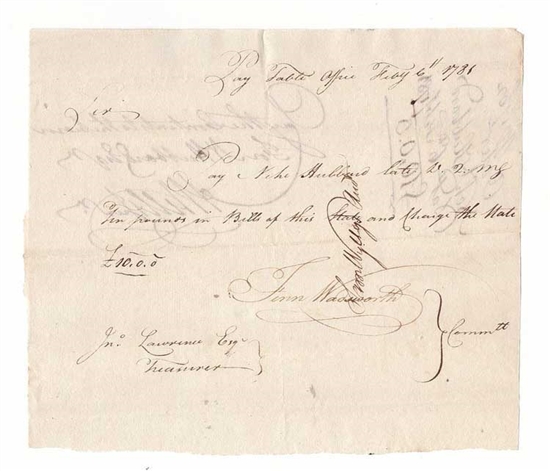 Pay Table Office Feby 6" 1781
Sir
Pay Nehe Hubbard late D. Q. Mg
Ten pounds in Bills of this State and Charge the State
£10.0.0
Fenn Wadsworth
Committ
Jno. Lawrence Esqr
Treasurer